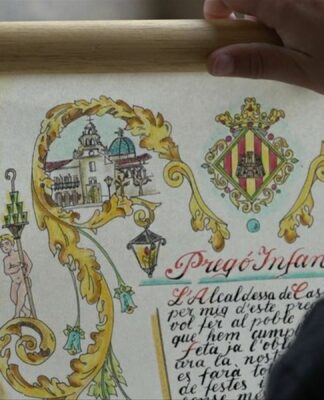 Pregó Infan
L'Alcaldessa de Cas
per mig d'este pre
vol fer al poble
que hem cump
feta ja l'ob
ara la nost
es farà to
de festes i